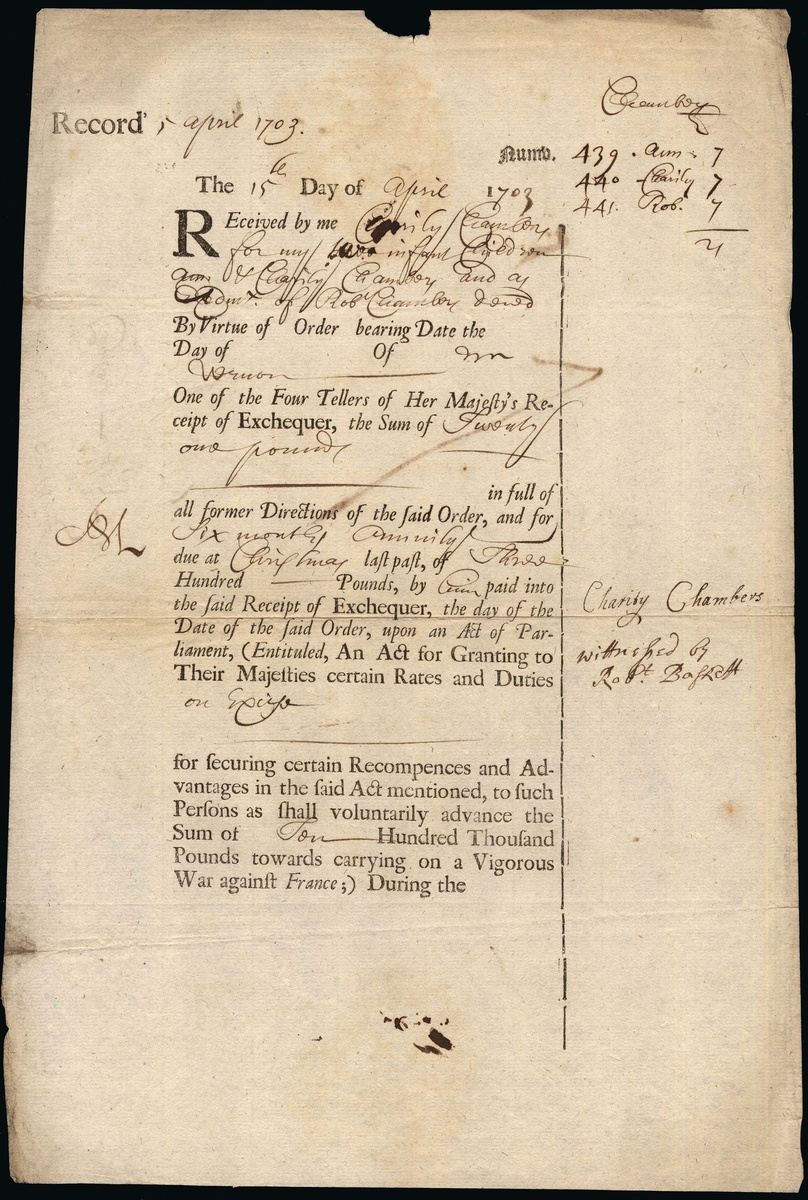 Chambers
Record' 5 April 1703.
Numb. 439 . Ann 7
440 Charity 7
441. Rob. 7
21
The 15th Day of April 1703
REceived by me Charity Chambers
for my two infant Children
Ann & Charity Chambers and as
Admx. of Robt. Chambers deced
By Virtue of Order bearing Date the
Day of Of Mr
Vernon
One of the Four Tellers of Her Majeſty's Re-
ceipt of Exchequer, the Sum of Twenty
one pounds
in full of
all former Directions of the ſaid Order, and for
Six months Annuity
due at Christmas laſt paſt, of Three
Hundred Pounds, by paid into
the ſaid Receipt of Exchequer, the day of the
Date of the ſaid Order, upon an Act of Par-
liament, (Entituled, An Act for Granting to
Their Majeſties certain Rates and Duties
on Excise
for ſecuring certain Recompences and Ad-
vantages in the ſaid Act mentioned, to ſuch
Perſons as ſhall voluntarily advance the
Sum of Ten Hundred Thouſand
Pounds towards carrying on a Vigorous
War againſt France;) During the
Charity Chambers
wittnesed by
Robt. Baskett